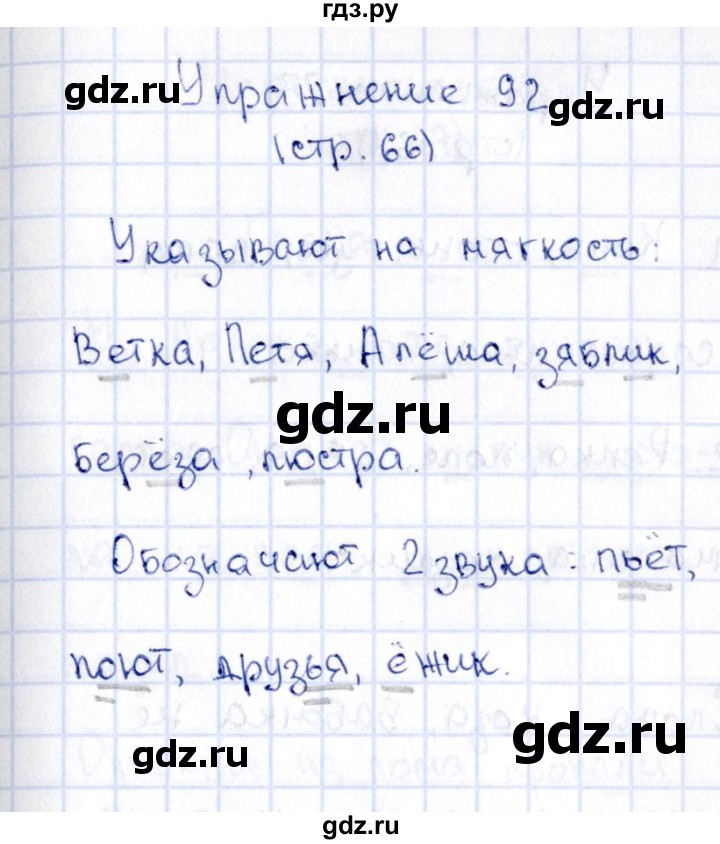 гдз.ру
gdz.ru
Упражнение 92
gdz.ru
(стр. 66)
Указывают на мягкость:
Ветка, Петя, Алёша, зяблик,
gdz.ru
берёза, люстра.
Обозначают 2 звука: пьёт,
поют, друзья, ёжик.
gdz.ru
gdz.ru
gdz.ru